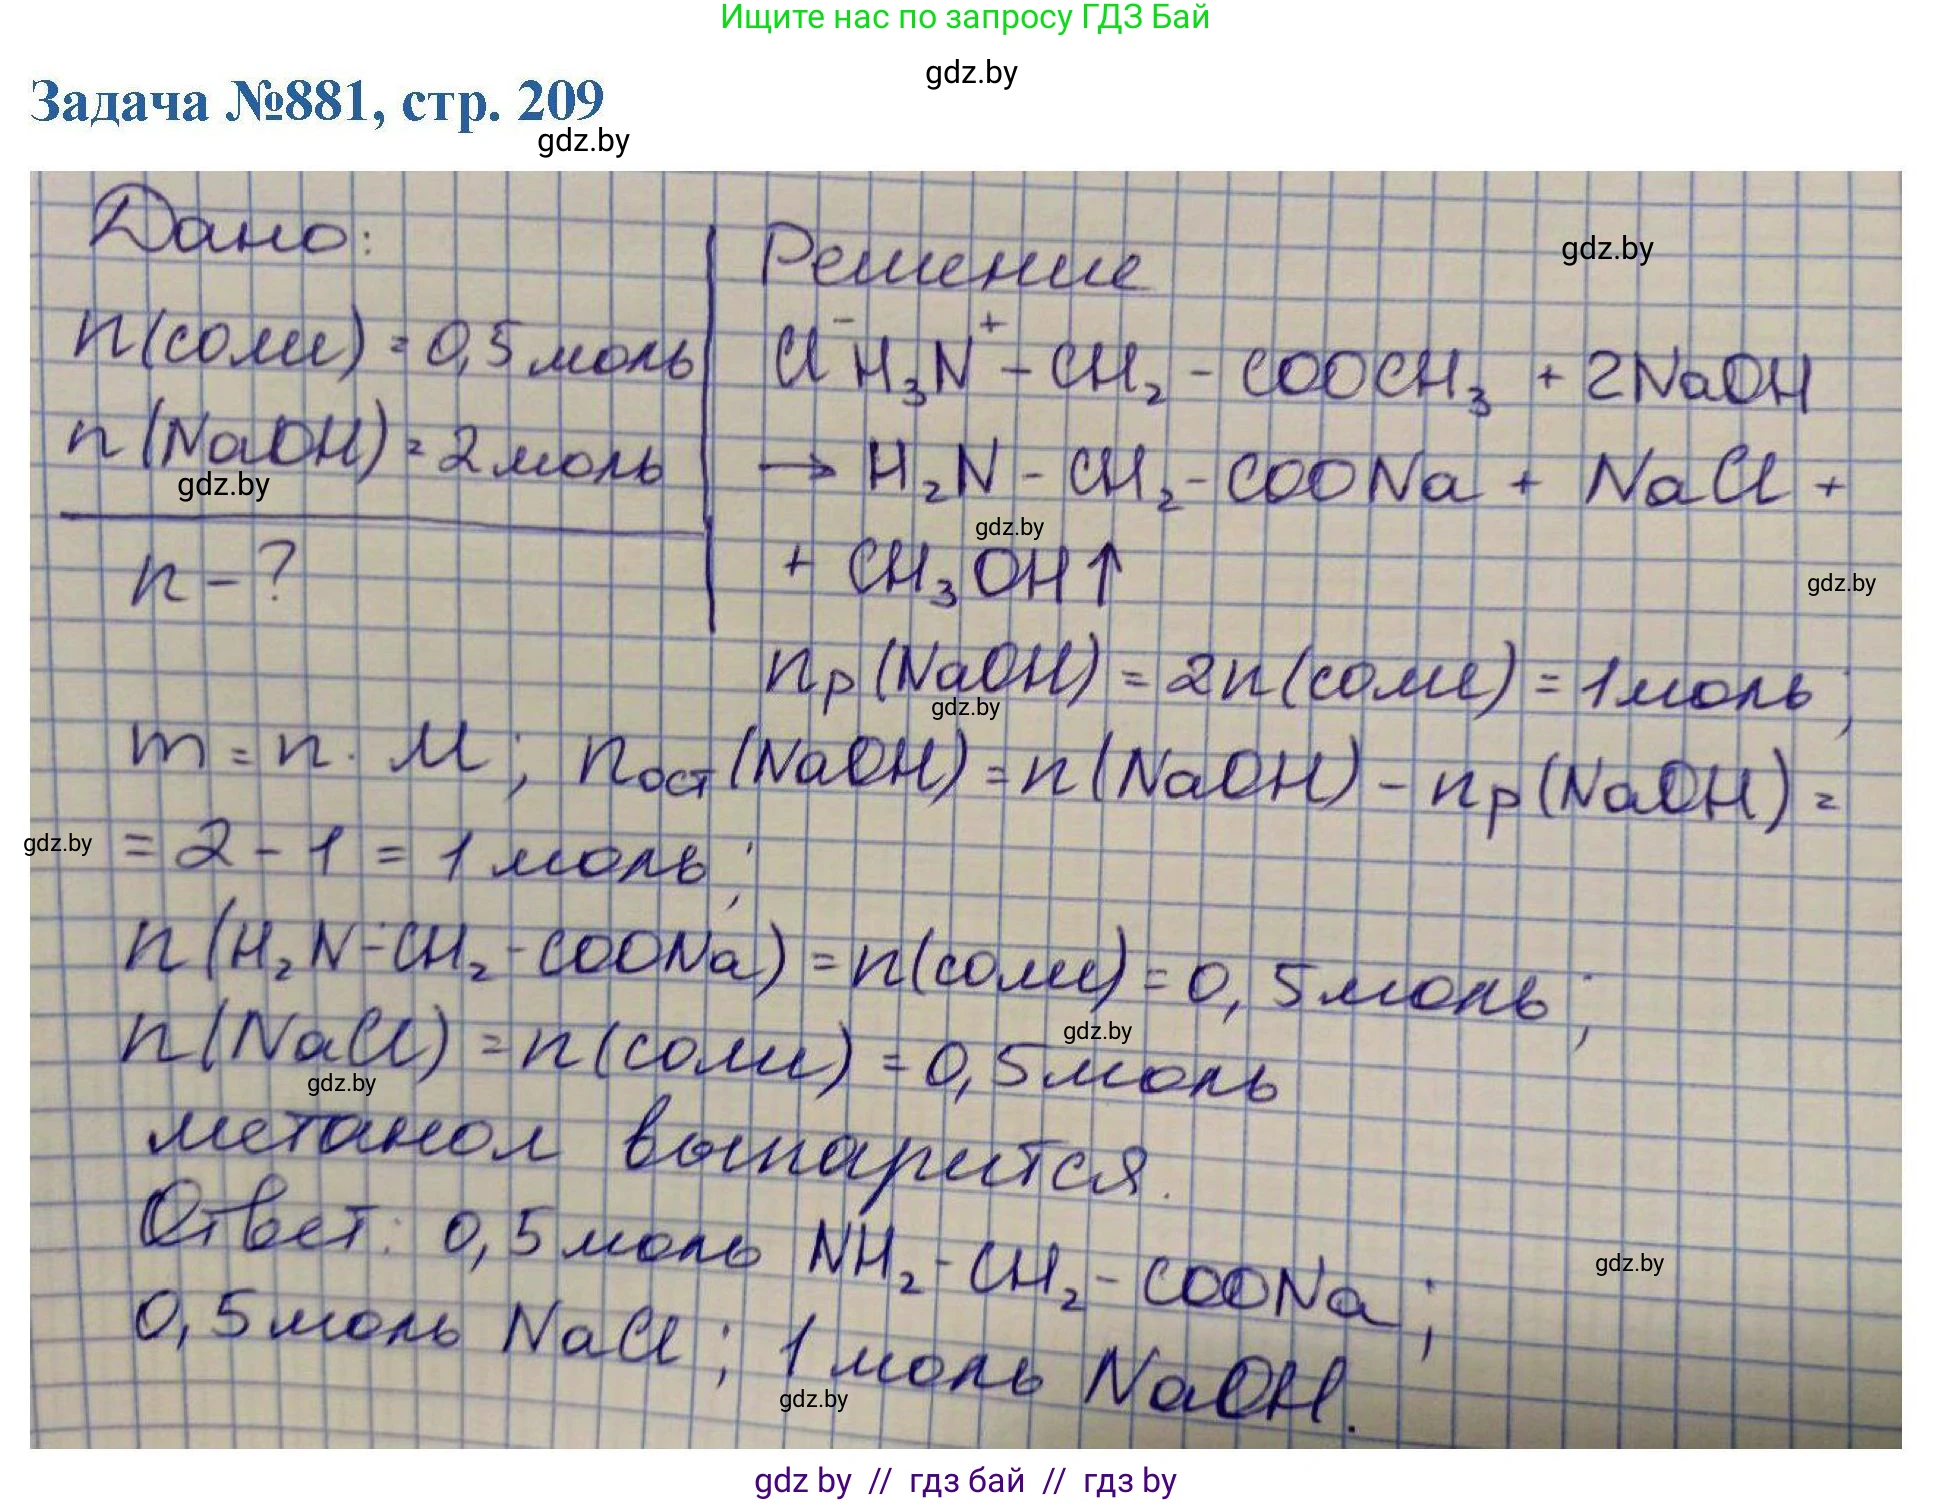 Ищите нас по запросу ГДЗ Бай
gdz.by
Задача №881, стр. 209
gdz.by
Дано:
n(соли) = 0,5 моль
n(NaOH) = 2 моль
gdz.by
n - ?
Решение
gdz.by
Cl⁻H₃N⁺ - CH₂ - COOCH₃ + 2NaOH
→ H₂N - CH₂ - COONa + NaCl +
gdz.by
+ CH₃OH↑
gdz.by
nр(NaOH) = 2n(соли) = 1 моль;
gdz.by
m = n · M; nост(NaOH) = n(NaOH) - nр(NaOH) =
gdz.by
= 2 - 1 = 1 моль;
n(H₂N-CH₂-COONa) = n(соли) = 0,5 моль;
gdz.by
n(NaCl) = n(соли) = 0,5 моль
gdz.by
метанол выпарится.
Ответ: 0,5 моль NH₂ - CH₂ - COONa;
gdz.by
0,5 моль NaCl; 1 моль NaOH.
gdz.by
gdz by // гдз бай // гдз by